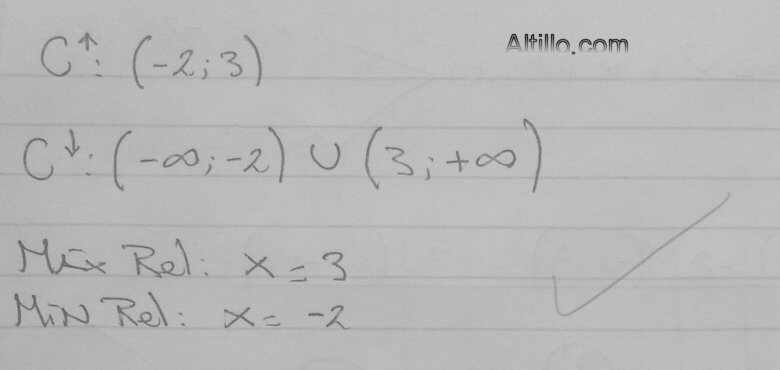 Altillo.com
C↑: (-2; 3)
C↓: (-∞; -2) ∪ (3; +∞)
Máx Rel: x = 3
MiN Rel: x = -2